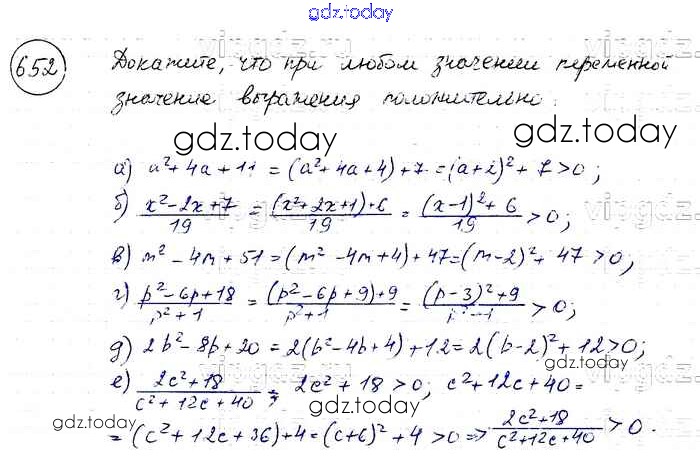 gdz.today
652. Докажите, что при любом значении переменной
значение выражения положительно.
gdz.today gdz.today
а) a²+4a+11 = (a²+4a+4)+7 = (a+2)²+7>0;
б) (x²-2x+7)/19 = ((x²+2x+1)+6)/19 = ((x-1)²+6)/19 > 0;
в) m²-4m+51 = (m²-4m+4)+47 = (m-2)²+47>0;
г) (p²-6p+18)/(p²+1) = ((p²-6p+9)+9)/(p²+1) = ((p-3)²+9)/(p²-1) > 0;
д) 2b²-8b+20 = 2(b²-4b+4)+12 = 2(b-2)²+12>0;
е) (2c²+18)/(c²+12c+40); 2c²+18>0; c²+12c+40 =
gdz.today gdz.today
= (c²+12c+36)+4 = (c+6)²+4>0 => (2c²+18)/(c²+12c+40) > 0.